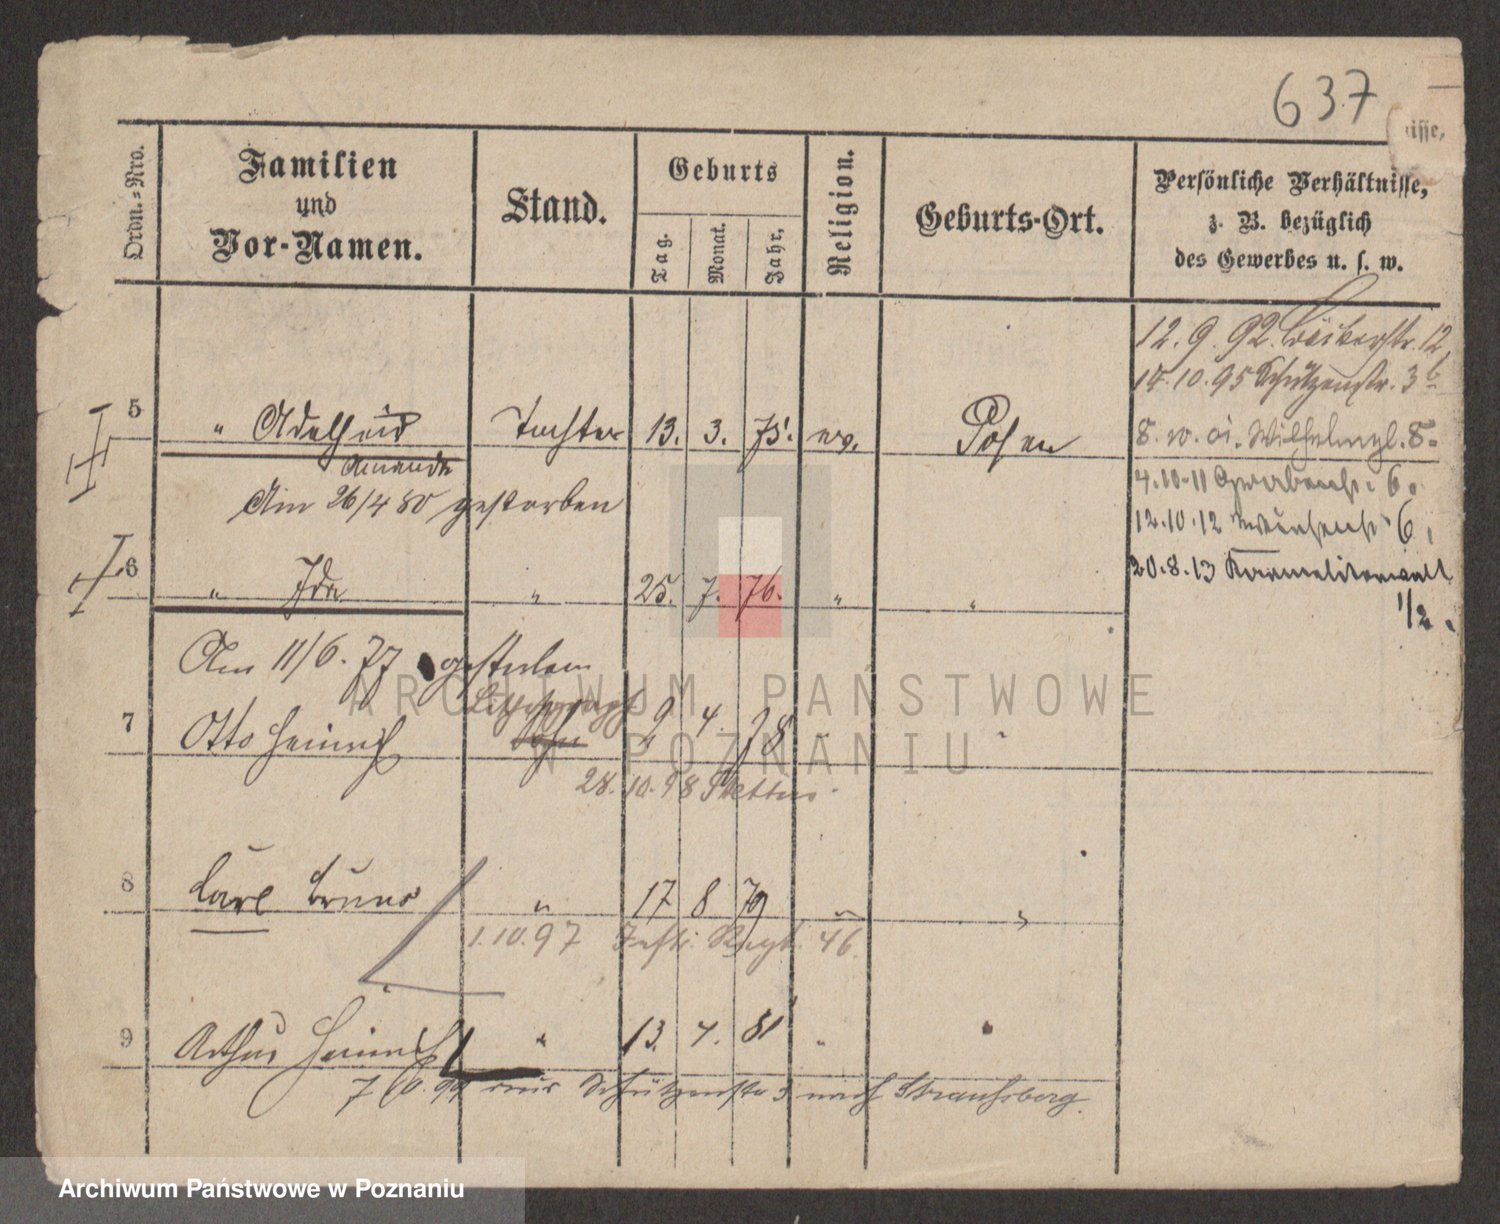 637
isse,
Ordn.-Nro.
Familien
und
Vor-Namen.
Stand.
Geburts
Tag.
Monat.
Jahr,
Religion.
Geburts-Ort.
Persönliche Verhältnisse,
z. B. bezüglich
des Gewerbes u. s. w.
12. 9. 92. Bäckerstr. 12,
14. 10. 95 Schützenstr. 3
5 " Adelheid Tochter 13. 3. 75. ev. Posen
8. 10. 01. Wilhelmpl. 8.
Amanda
4.10.11 6.
Am 26/4 80 gestorben
12.10.12 6,
6 " Ida " 25. 7. 76. " "
20.8.13 Karmeliterwall
1/2.
Am 11/6. 77 gestorben
Lithograph
7 Otto Heinrich Sohn 9 4. 78 " "
28. 10. 98 Stettin
8 Carl Bruno " 17 8 79 " "
1.10.97 Inftr. Regt. 46
9 Arthur Heinrich " 13. 4. 81 " "
7 99 Schützenstr 3 nach Straussberg.
ARCHIWUM PAŃSTWOWE
W POZNANIU
Archiwum Państwowe w Poznaniu